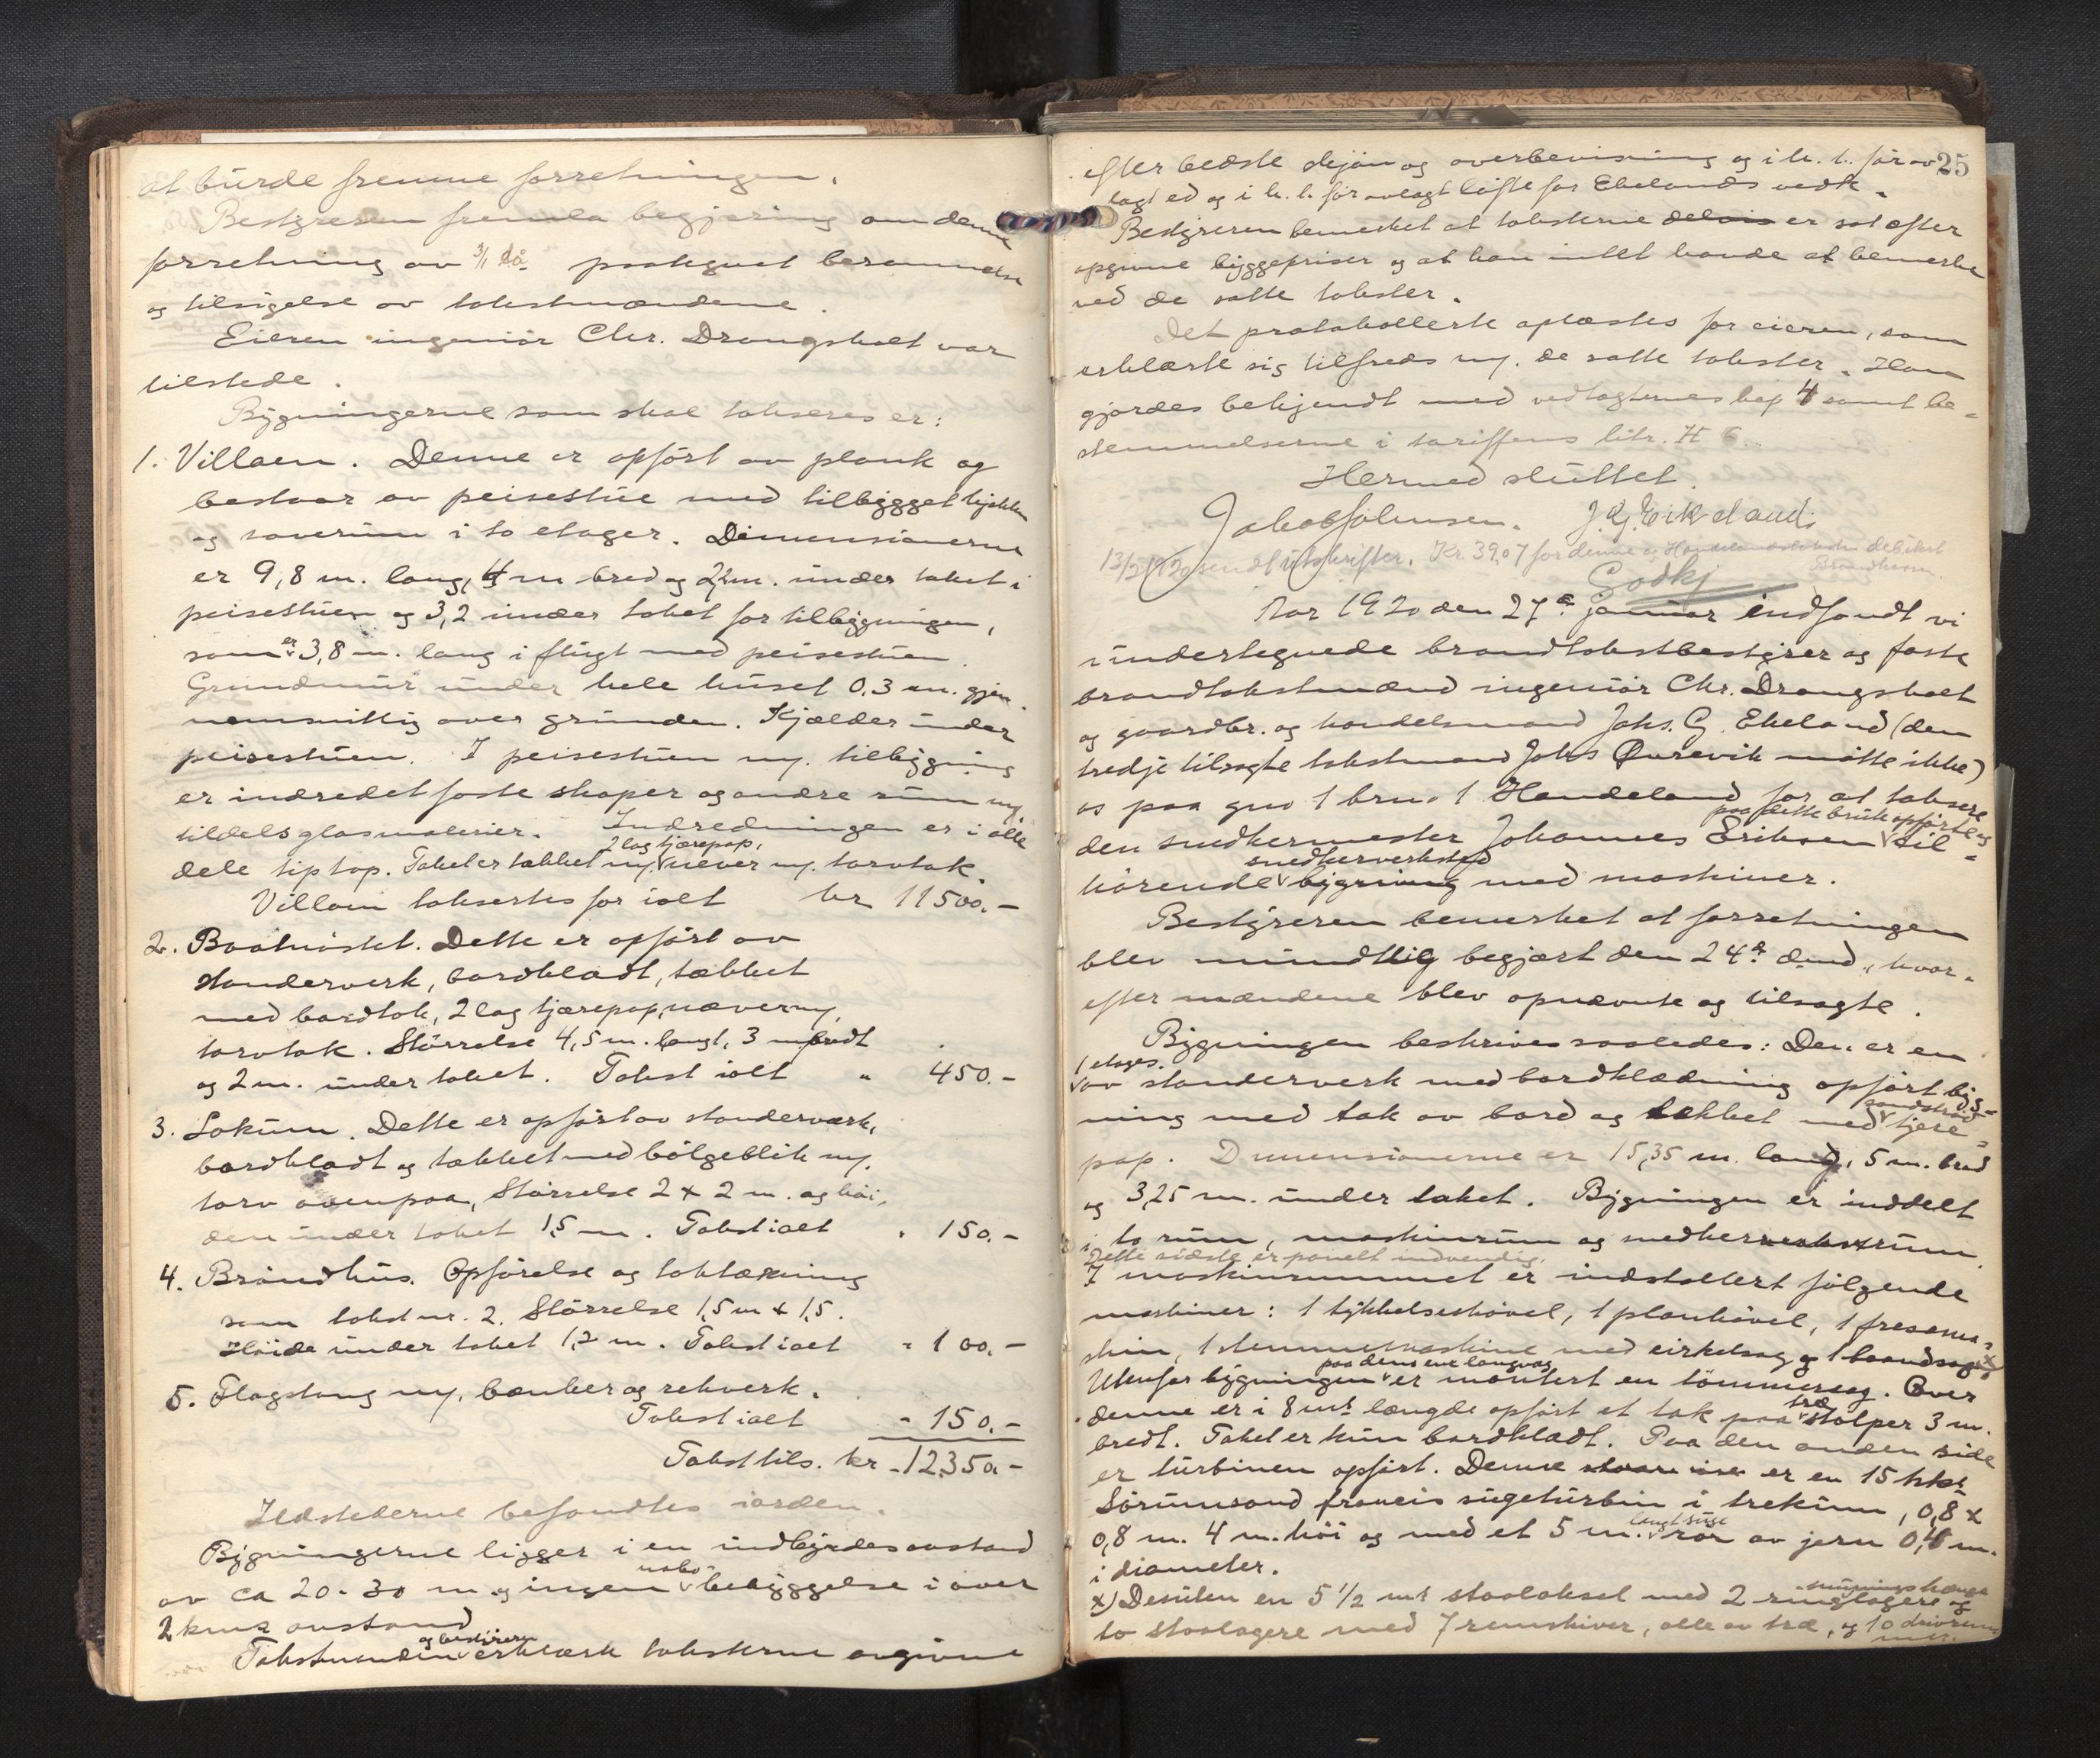 at burde fremme forretningen.
Bestyreren fremla begjæring om denne
forretning av 3/1 då. paategnet berammelse
og tilsigelse av takstmændene.
Eieren ingeniør Chr. Drangsholt var
tilstede.
Bygningerne som skal takseres er:
1. Villaen. Denne er opført av plank og
bestaar av peisestue med tilbygget kjøkken
og soverum i to etager. Dimensionerne
er 9,8 m. lang, 4 m bred og 2,2 m. under taket i
peisestuen og 3,2 under taket for tilbygningen,
som er 3,8 m. lang i flugt med peisestuen.
Grundmur under hele huset 0.3 m. gjen-
nemsnittlig over grunden. Kjælder under
peisestuen. I peisestuen m/. tilbygning
er indredet faste skaper og andre rum m/.
tildels glasmalerier. Indredningen er i alle
dele tip top. Taket er tækket m/. 2 lag tjærepap, næver m/. torvtak.
Villaen taksertes for ialt kr 11500.-
2. Baatnøstet. Dette er opført av
standerverk, bordklædt, tækket
med bordtak, 2 lag tjærepap, næver m/.
torvtak. Størrelse 4,5 m. langt, 3 m bredt
og 2 m. under taket. Takst ialt " 450.-
3. Lokum. Dette er opført av standerværk,
bordklædt og tækket med bølgeblik m/.
torv ovenpaa, Størrelse 2 x 2 m. og høi-
den under taket 1,5 m. Takst ialt " 150.-
4. Brøndhus. Opførelse og taktækning
som takst nr. 2. Størrelse 1,5 m x 1,5.
Høide under taket 1,2 m. Takst ialt " 100.-
5. Flagstang m/. bænker og rekverk.
Takst ialt " 150.-
Takst tils. kr 12350.-
Ildstederne befandtes iorden.
Bygningerne ligger i en indbyrdes avstand
av ca 20-30 m. og ingen nabobebyggelse i over
2 kms avstand
Takstmændene og bestyreren erklærte taksterne avgivne
25
efter bedste skjøn og overbevisning og i h. t. før av-
lagt ed og i h. t. før avlagt løfte for Ekelands vedk.
Bestyreren bemerket at taksterne delvis er sat efter
opgivne byggepriser og at han intet havde at bemerke
ved de satte takster.
Det protokollerte oplæstes for eieren, som
erklærte sig tilfreds m/. de satte takster. Han
gjordes bekjendt med vedtægternes kap 4 samt be-
stemmelserne i tariffens litr. H 6.
Hermed sluttet.
Jakob Johnsen. J. G. Eikeland.
13/2 1920 sendt utskrifter. Kr. 39.07 for denne og debitert
Brandkassen.
Godkj
Aar 1920 den 27de januar indfandt vi
undertegnede brandtakstbestyrer og faste
brandtakstmænd ingeniør Chr. Drangsholt
og gaardbr. og handelsmand Johs. G. Ekeland (den
tredje tilsagte takstmand Johs Øvrevik møtte ikke)
os paa gno 1 brn. 1 Handeland for at taksere
den snedkermester Johannes Eriksen paa dette bruk opførte og til-
hørende snedkerverksted bygning med maskiner.
Bestyreren bemerket at forretningen
blev mundtlig begjært den 24de d.md., hvor-
efter mændene blev opnævnte og tilsagte.
Bygningen beskrives saaledes: Den er en
1 etages. av standerverk med bordklædning opført byg-
ning med tak av bord og tækket med sandstrød tjære-
pap. Dimensionerne er 15,35 m. lang, 5 m. bred
og 3,25 m. under taket. Bygningen er inddelt
i to rum, maskinrum og snedkerrum.
Dette sidste er panelt indvendig.
I maskinrummet er indstallert følgende
maskiner: 1 tykkelseshøvel, 1 planhøvel, 1 fresema-
skin, 1 stemmemaskine med cirkelsag og 1 baandsag x)
Utenfor bygningen paa dens ene langvæg er montert en tømmersag. Over
denne er i 8 mrs længde opført et tak paa træstolper 3 m.
bredt. Taket er kun bordklædt. Paa den anden side
er turbinen opført. Denne er en 15 hks
Sørumsand francis sugeturbin i trekum, 0,8 x
0,8 m. 4 m. høi og med et 5 m. langt suge rør av jern 0,4 m.
i diameter.
x) Desuten en 5 1/2 mrs staalaksel med 2 ringlagere og
to staalagere med 7 remskiver, alle av træ, og 10 drivrem